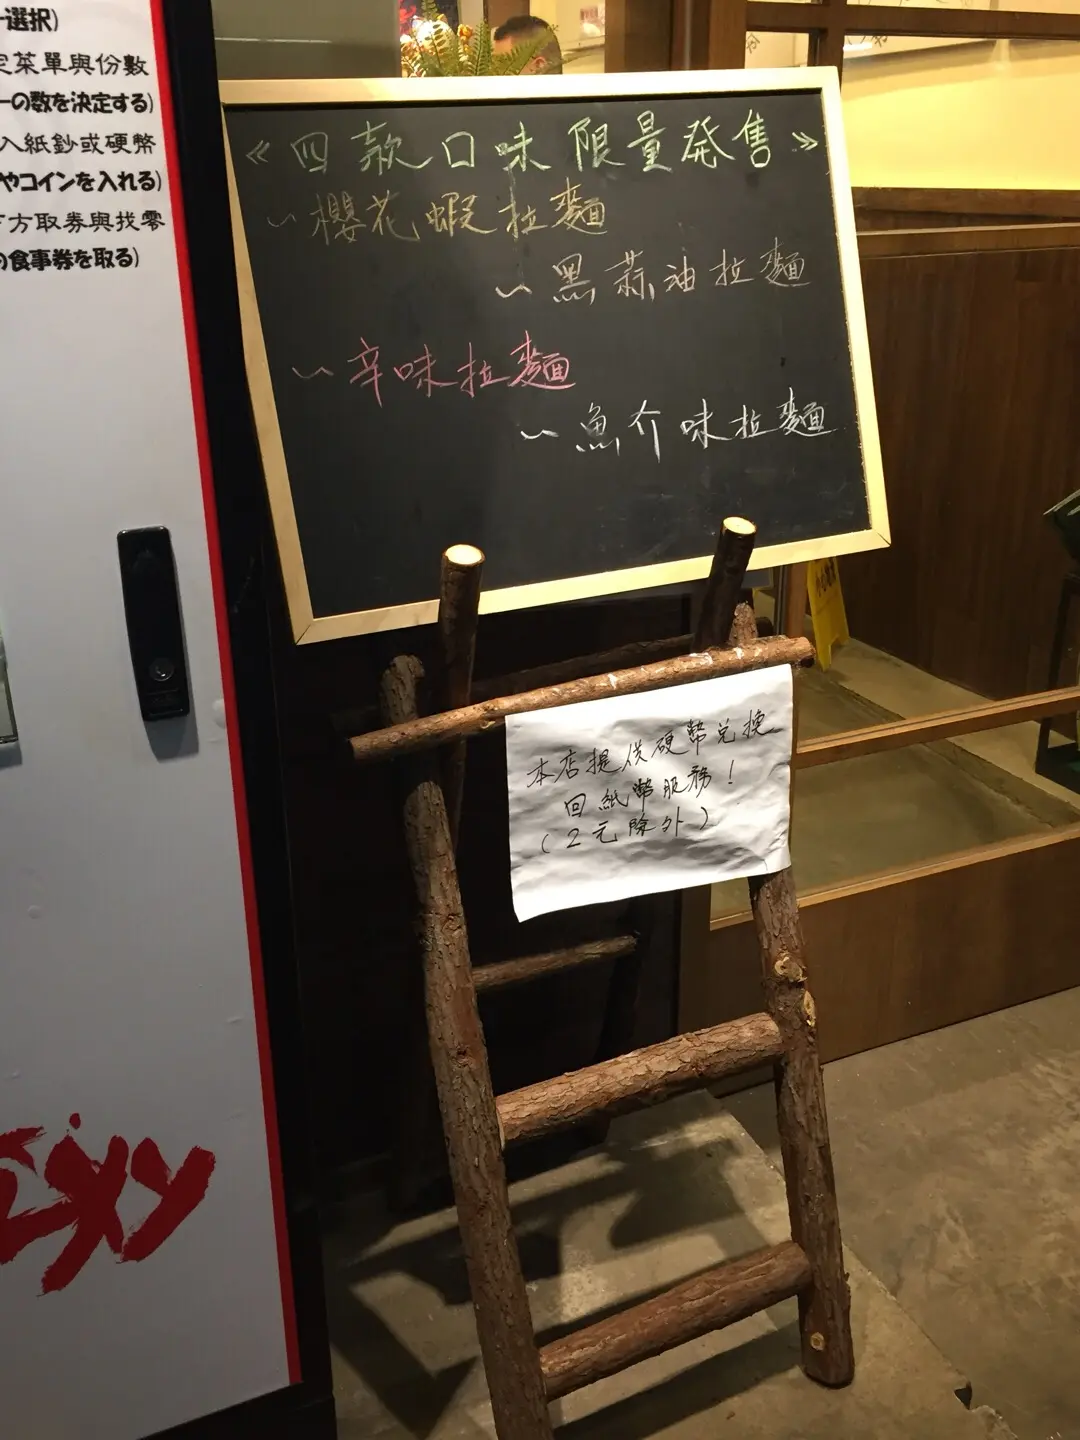 選択)
菜單與份數
の数を決定する)
入紙鈔或硬幣
やコインを入れる)
方取券與找零
の食事券を取る)
《四款口味限量発售》
~櫻花蝦拉麵
~黑蒜油拉麵
~辛味拉麵
~魚介味拉麵
本店提供硬幣兌換
回紙幣服務!
(2元除外)